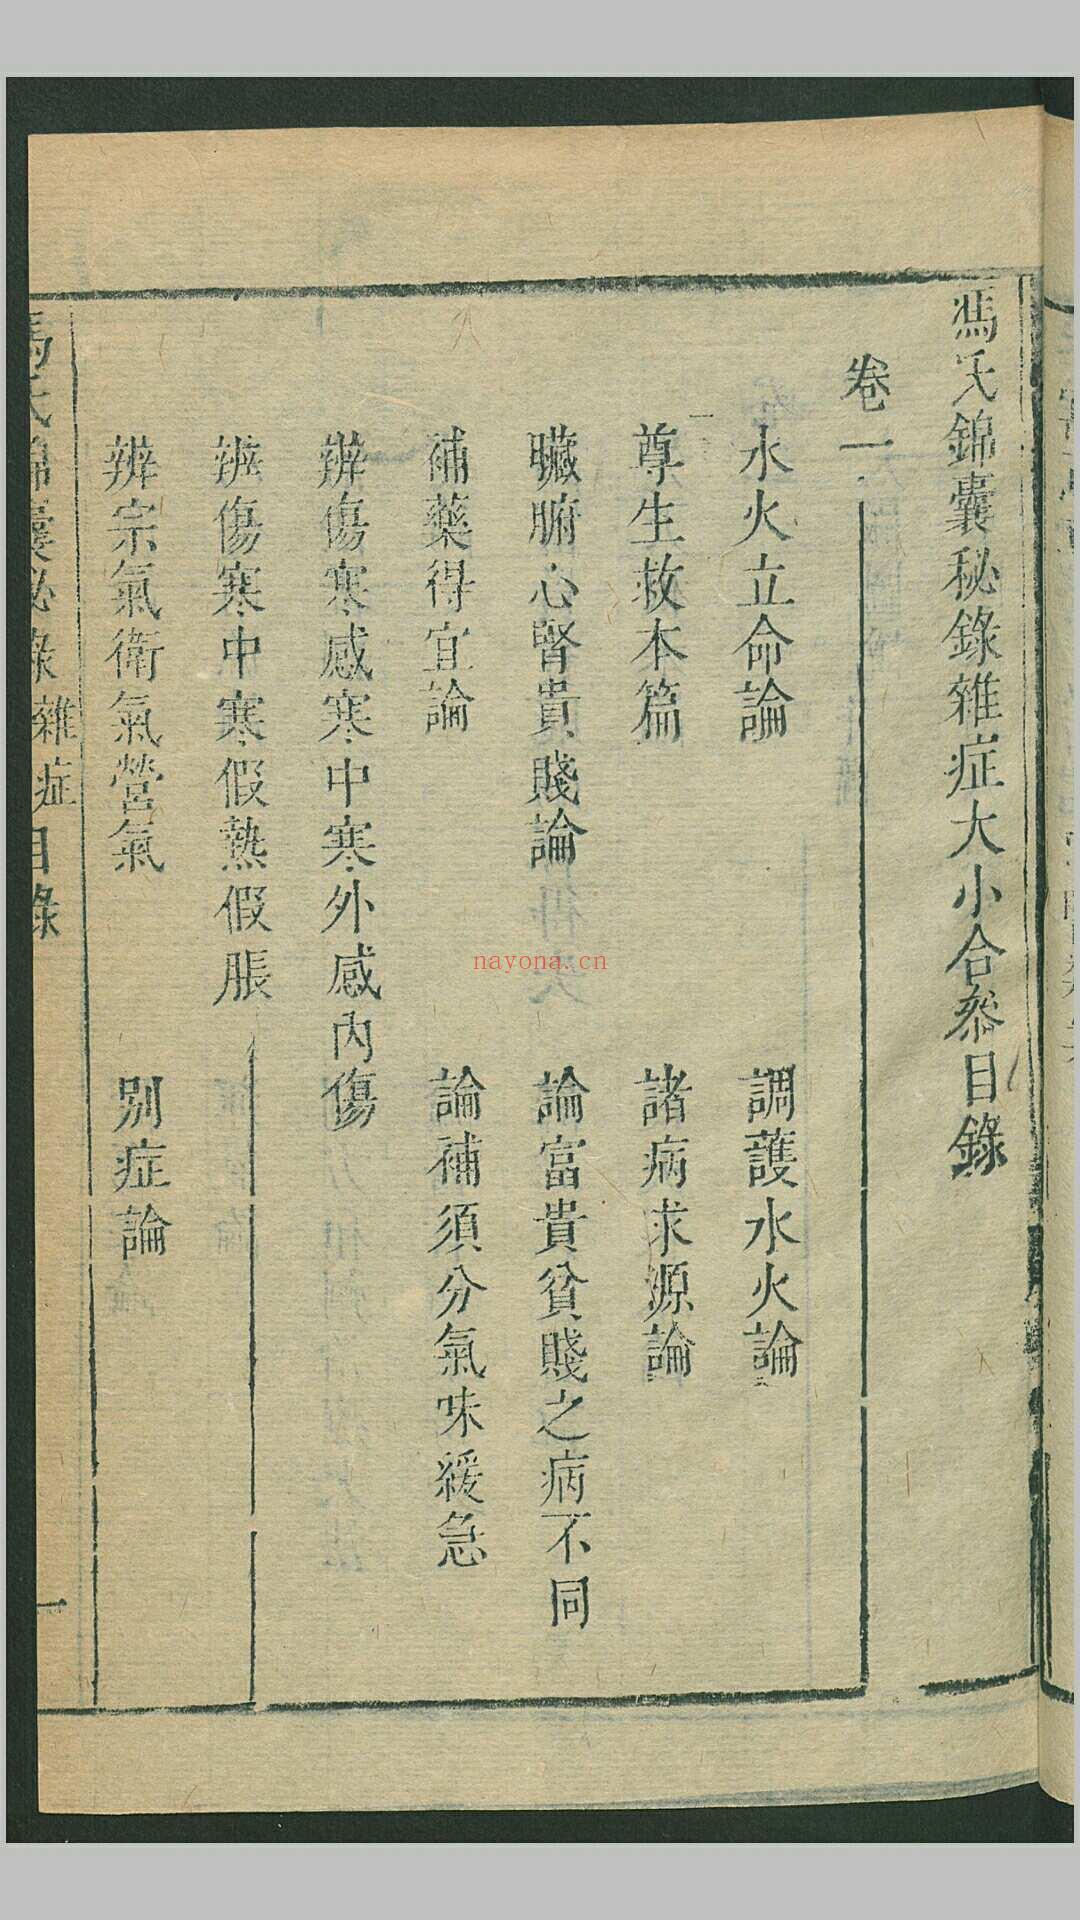 馮氏錦囊秘錄雜症大小合叅目錄
卷一
水火立命論　調護水火論
尊生救本篇　諸病求源論
臟腑心腎貴賤論　論富貴貧賤之病不同
補藥得宜論　論補須分氣味緩急
辨傷寒感寒中寒外感內傷
辨傷寒中寒假熱假脹
辨宗氣衛氣營氣　別症論
馮氏錦囊秘錄　雜症目錄　一
nayona.cn